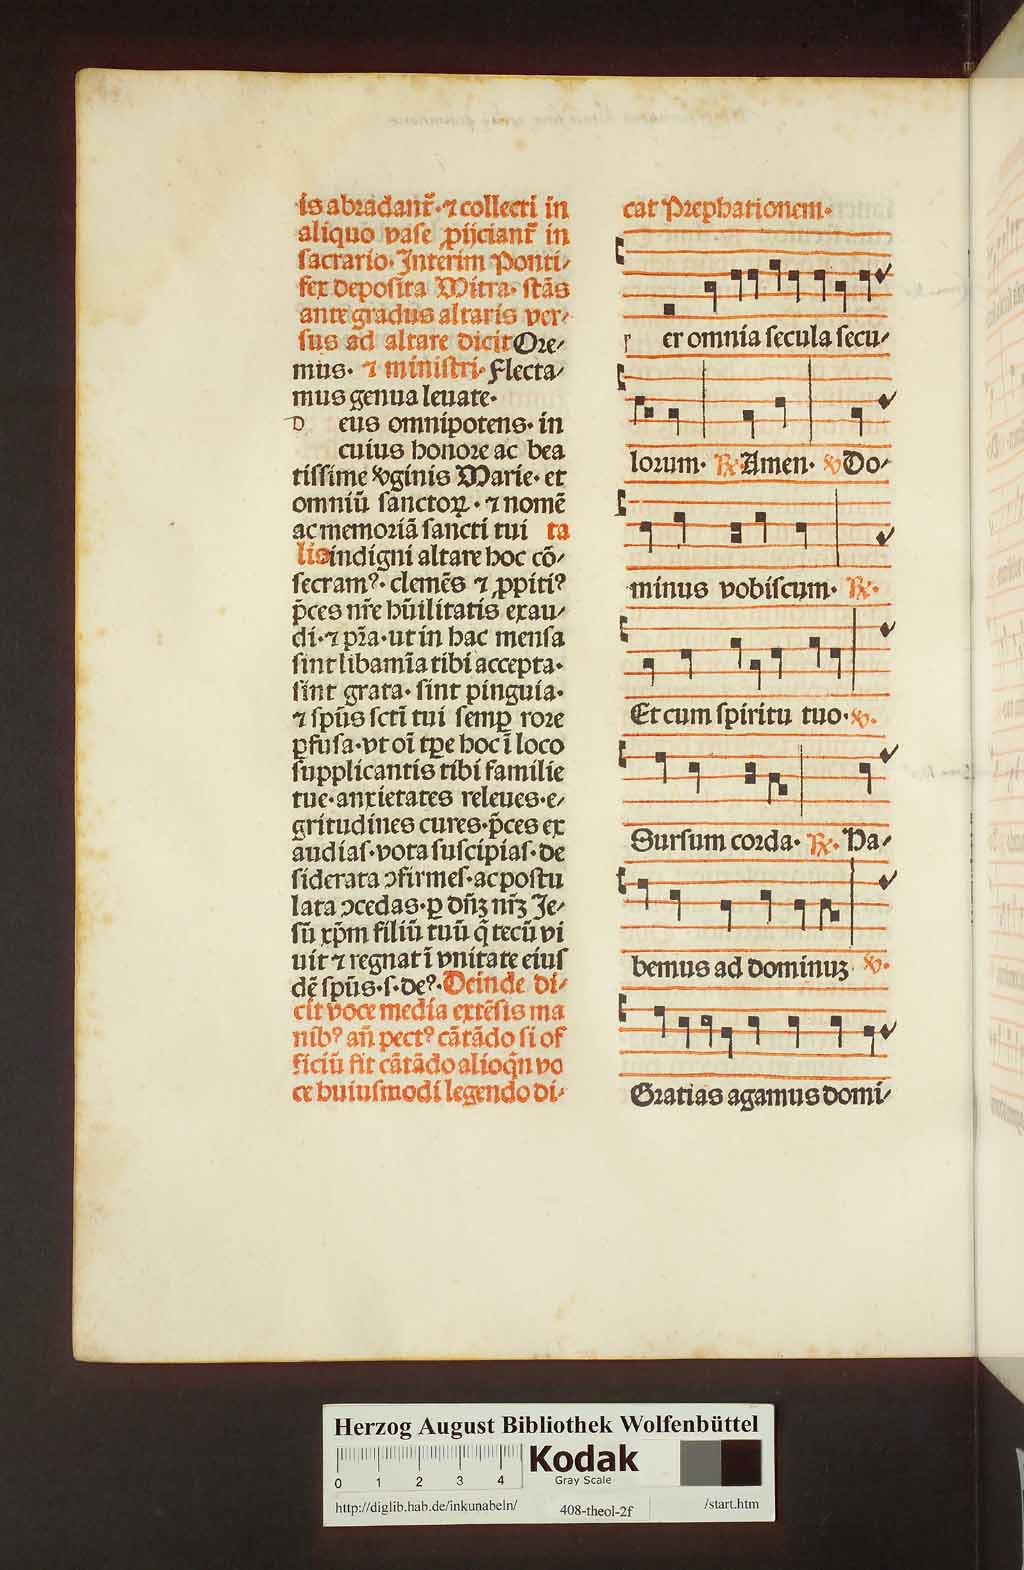 is abradant᷑·⁊ collecti in
aliquo vase ꝓijciant᷑ in
sacrario· Interim Ponti⸗
fex deposita Mitra· stās
ante gradus altaris ver⸗
sus ad altare dicit Ore⸗
mus· ⁊ ministri· Flecta⸗
mus genua leuate·
D eus omnipotens· in
cuius honore ac bea
tissime v̓ginis Marie· et
omniū sanctoꝝ·⁊ nomē
ac memoriā sancti tui ta
lis indigni altare hoc cō⸗
secramꝰ· clemēs ⁊ ꝓpitiꝰ
p̄ces nr̄e hūilitatis exau⸗
di·⁊ p̄ta· ut in hac mensa
sint libamīa tibi accepta·
sint grata· sint pinguia·
⁊ spūs sctī tui semꝑ rore
ꝑfusa· vt oī tꝑe hoc ī loco
supplicantis tibi familie
tue· anxietates releues· e⸗
gritudines cures· p̄ces ex
audias· vota suscipias· de
siderata ↄfirmes· ac postu
lata ↄcedas· ꝑ dn̄ꝫ nr̄ꝫ Je⸗
sū xp̄m filiū tuū q̄ tecū vi
uit ⁊ regnat ī vnitate eius
dē spūs· s· deꝰ· Deinde di⸗
cit voce media extēsis ma
nibꝰ añ pectꝰ cātādo si of
ficiū fit cātādo alioq̄n vo
ce huiusmodi legendo di⸗
cat Prephationem·
P er omnia secula secu⸗
lorum· ℞· Amen· ℣ Do⸗
minus vobiscum· ℞·
Et cum spiritu tuo· ℣·
Sursum corda· ℞· Ha⸗
bemus ad dominuꝫ ℣·
Gratias agamus domi⸗
Herzog August Bibliothek Wolfenbüttel
Kodak
Gray Scale
0 1 2 3 4
http://diglib.hab.de/inkunabeln/ 408-theol-2f /start.htm